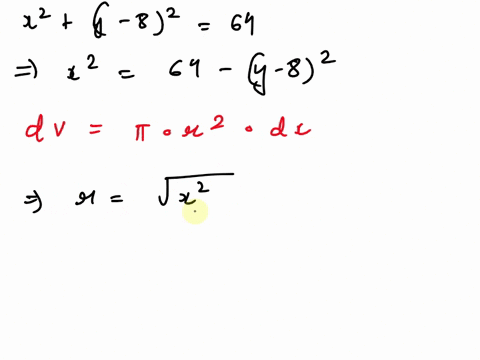 x² + (y - 8)² = 64
⇒ x² = 64 - (y - 8)²
dv = π · r² · dx
⇒ r = √x²